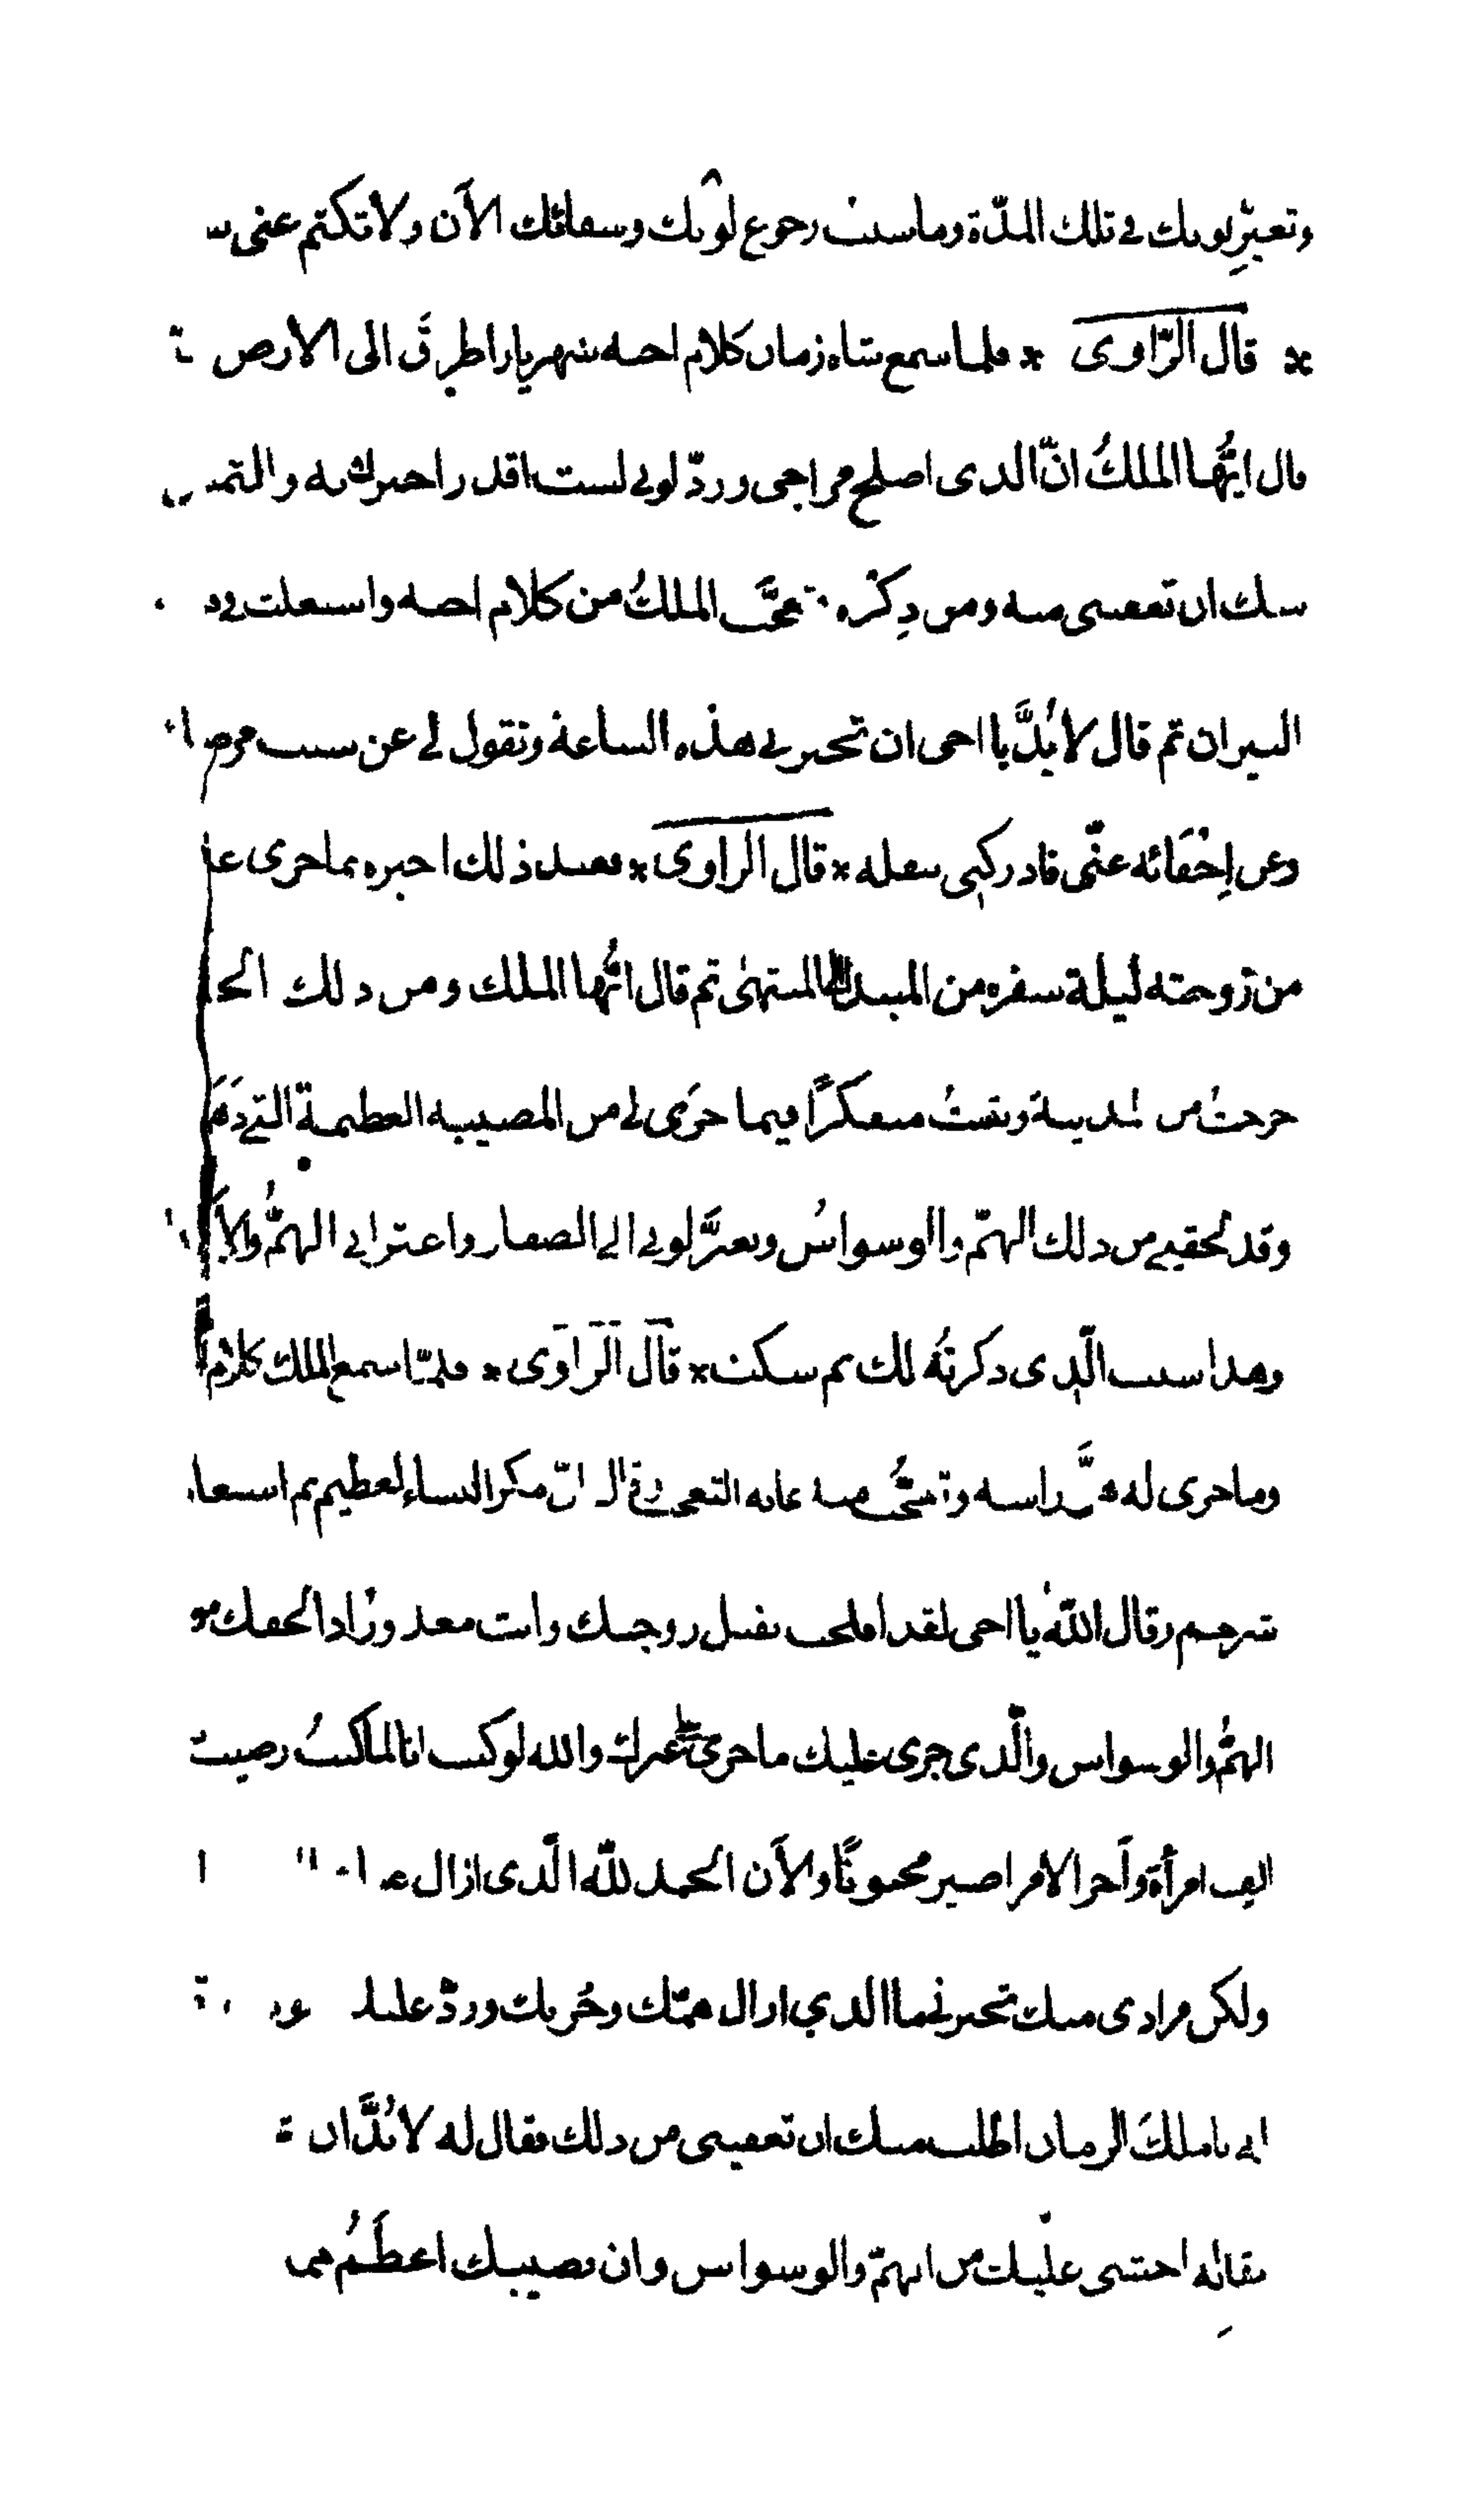 وتغيّر لونك في تلك المدّة وما سبب رجوع لونك وشفائك الآن ولا تكتم عنى
* قال الرّاوى * فلما سمع شاه زمان كلام اخيه شهريار اطرق الى الارض
قال ايّها الملكُ انّ الذى اصلح مزاجى وردّ لونى لست اقدر اخبرك به والتمس
منك ان تعفينى منه ومن ذِكرْه فتعجَّب الملكُ من كلام اخيه واشعلت فيه
النيران ثم قال لا بُدَّ يا اخى ان تخبرنى هذه الساعة وتقول لى عن سبب مرضك
وعن اِخفَائه عنّى فادركنى بنقله * قال الراوى * فعند ذلك اخبره بما جرى عليه
من زوجته ليلة سفره من المبتدا للمنتهى ثم قال ايُّها الملك ومن ذلك الحال
خرجتُ من المدينة وبقيتُ متفكرًا فيما جرَى لى من المصيبه العظيمة التى
وقد لحقنى من ذلك الهمّ والوسواسُ وتغيَّر لونى الى الصفار واعترانى الهمُّ والا
وهذا سبب الّذى ذكرتُه لك ثم سكت * قال الراوى * فلمّا سمع الملك كلام
وما جرى له هزَّ راسه وتعجَّب منه غايه التعجب وقال انّ مكر النساء لعظيم ثم استعاذ
من شرهم وقال اللّه يا اخى لقد افلحت بقتل زوجتك وانت معذور اذا لحقك
الهمُّ والوسواس والّذى جرى عليك ما جرى لغيرك والله لو كنت انا لما كنتُ رضيت
الف امرأة وآخر الامر اصير مجنونًا والآن الحمد للّه الّذى ازال
ولكن مرادى منك تخبرنى ما الذى ازال همّك وحُزنك وردّ عليك
انى يا ملكَ الزمان اطلب منك ان تعفينى من ذلك فقال له لا بُدَّ ان
فقال له اخشى عليك من الهمّ والوسواس وان نصيبك اعظَمُ من